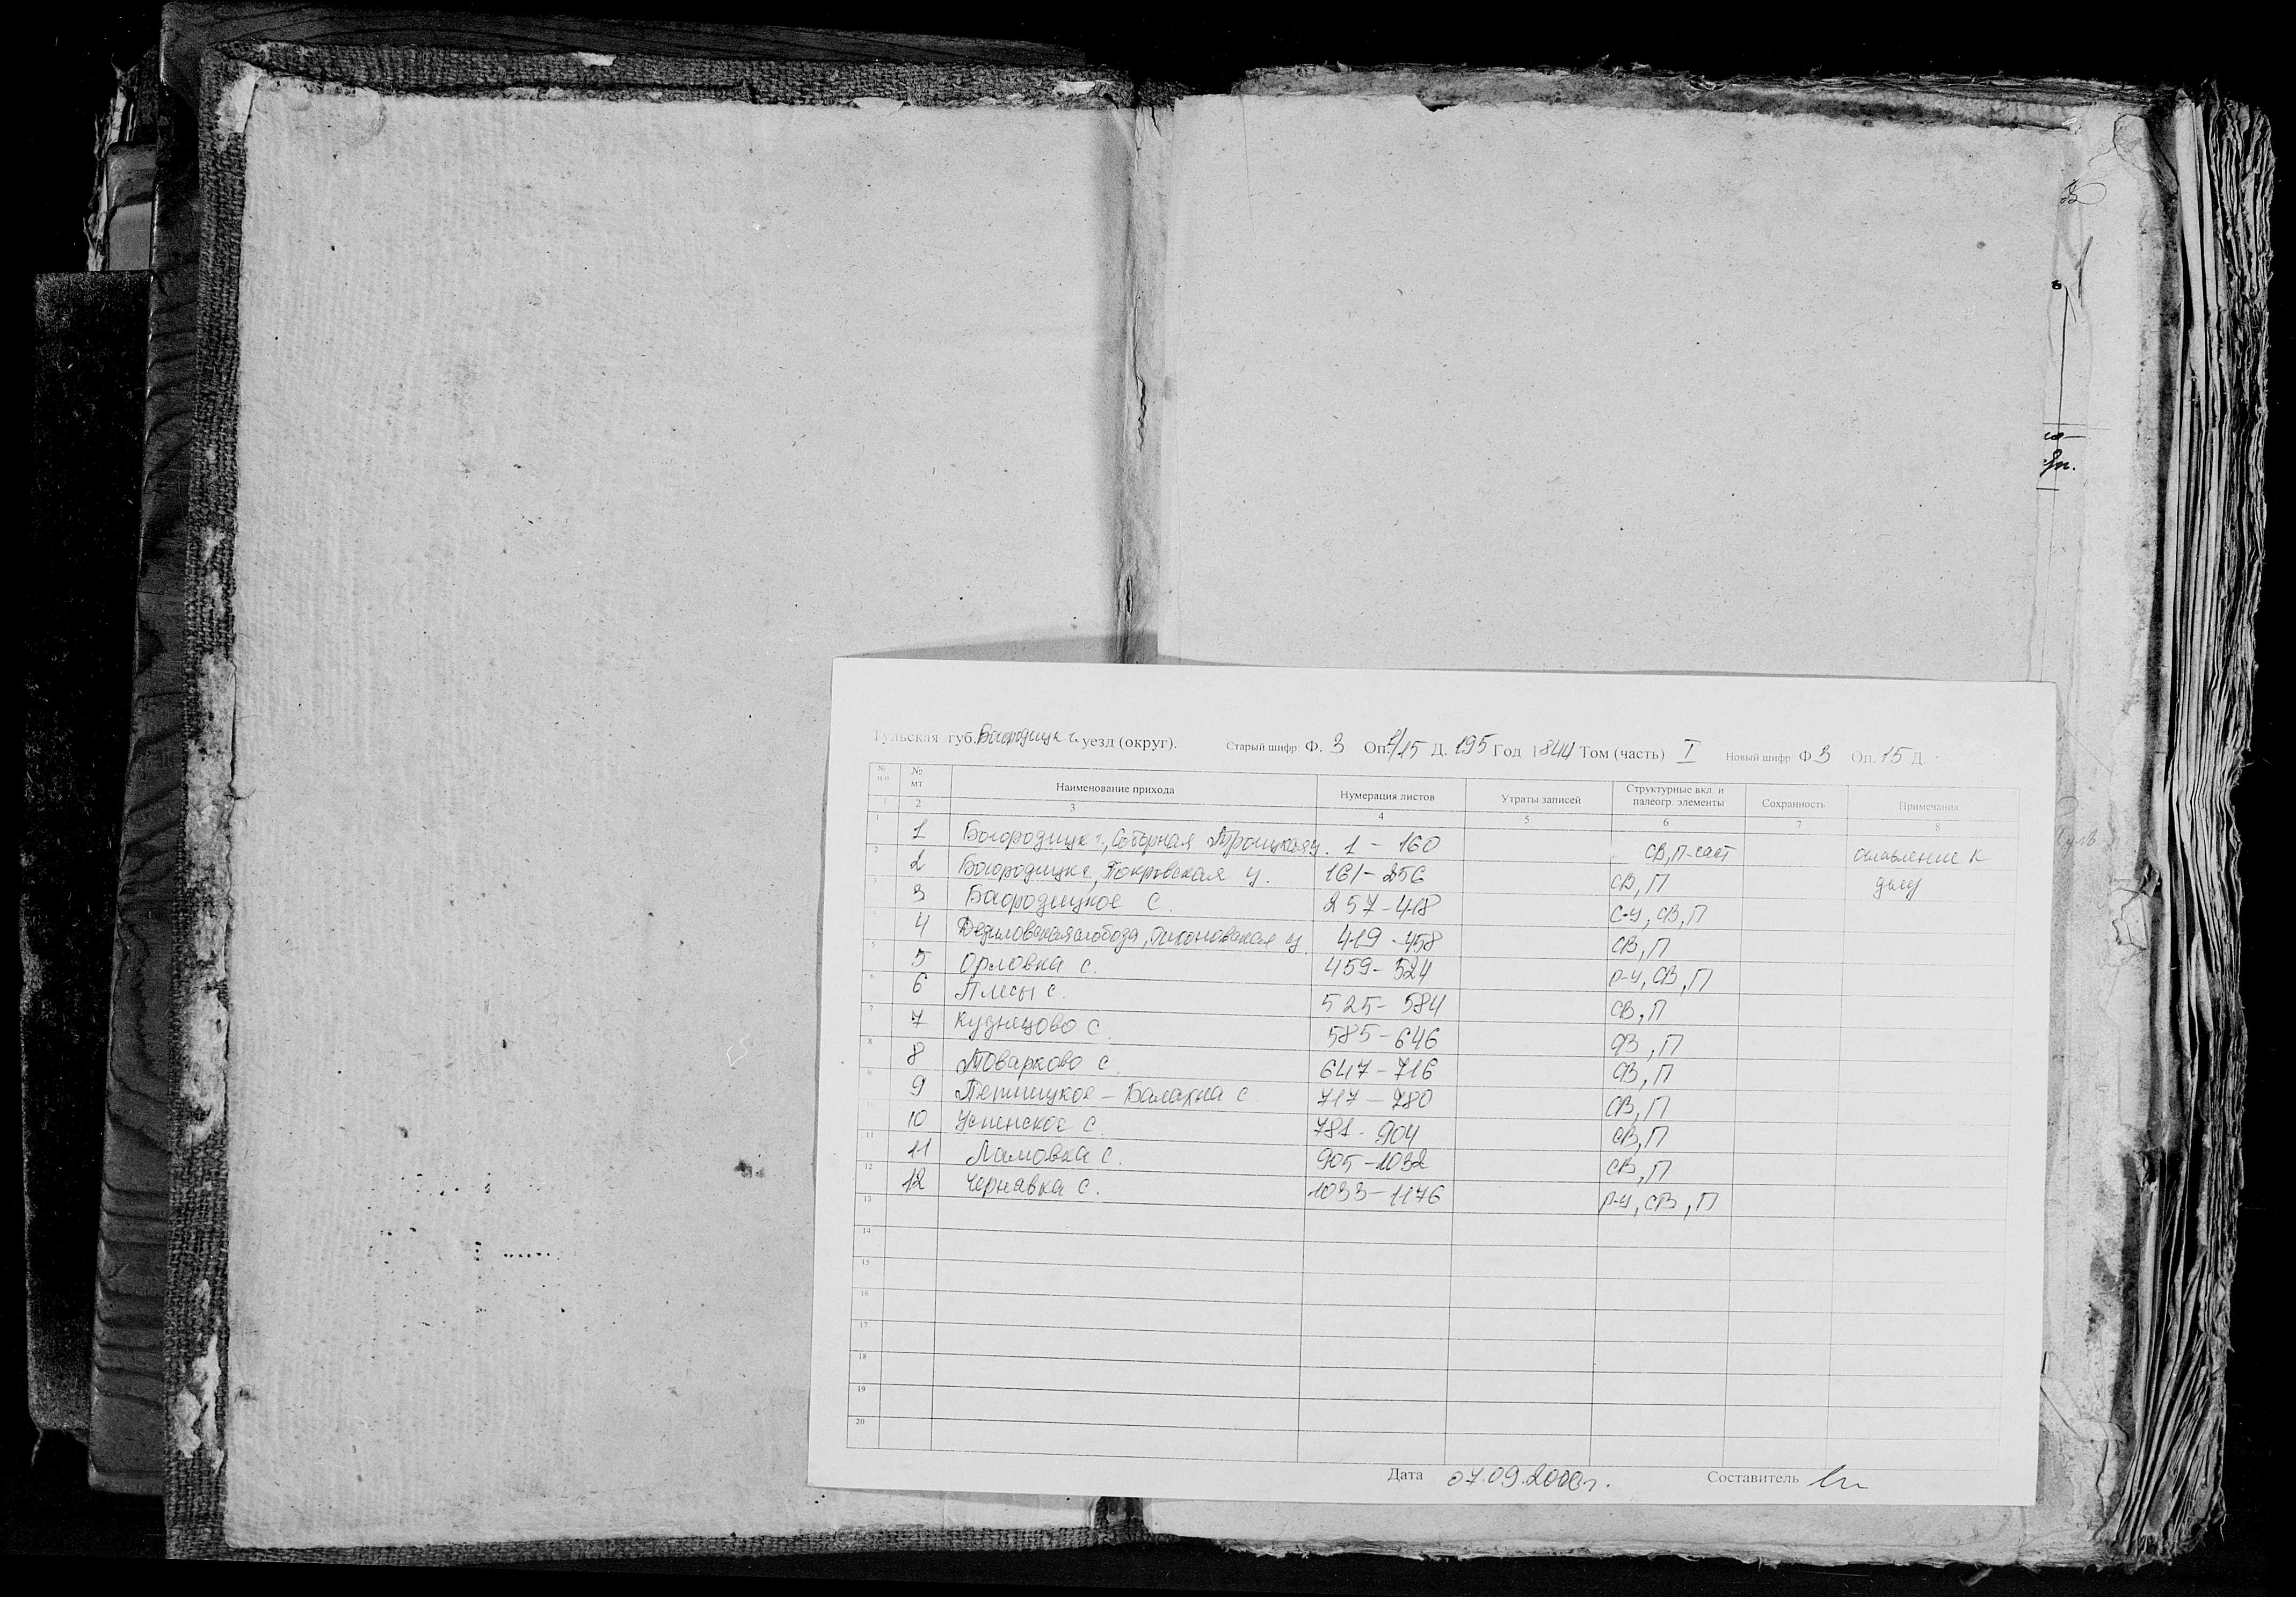 Тульская губ. Богородицк г. уезд (округ). Старый шифр: Ф. 3 Оп. 2/15 Д. 195 Год 1844 Том (часть) I Новый шифр Ф 3 Оп. 15 Д.
№ п.п № мт Наименование прихода Нумерация листов Утраты записей Структурные вкл. и палеогр. элементы Сохранность Примечания
1 2 3 4 5 6 7 8
1 1 Богородицк г., Соборная Троицкая ц. 1 - 160 СВ, П-част оглавление к
2 2 Богородицк г., Покровская ц. 161-256 СВ, П делу
3 3 Богородицкое с. 257-418 с-у, СВ, П
4 4 Дедиловская слобода, Тихоновская ц. 419-458 СВ, П
5 5 Орловка с. 459-524 р-у, СВ, П
6 6 Плесы с. 525-584 СВ, П
7 7 Кузнецово с. 585-646 СВ, П
8 8 Товарково с. 647-716 СВ, П
9 9 Пятницкое - Балахна с. 717-780 СВ, П
10 10 Успенское с. 781-904 СВ, П
11 11 Ламовка с. 905-1032 СВ, П
12 12 Чернявка с. 1033-1176 р-у, СВ, П
13
14
15
16
17
18
19
20
Дата 07.09.2000г. Составитель